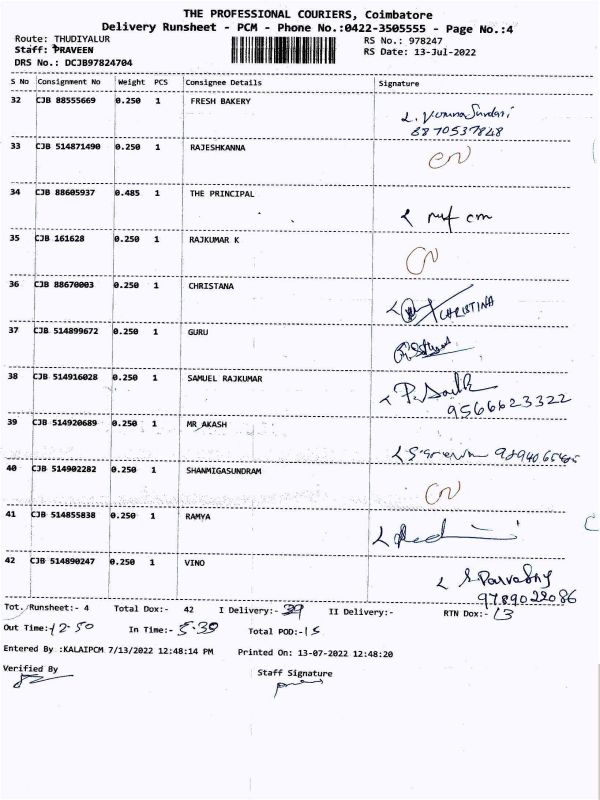 THE PROFESSIONAL COURIERS, Coimbatore
Delivery Runsheet - PCM - Phone No.:0422-3505555 - Page No.:4
Route: THUDIYALUR
RS No.: 978247
Staff: PRAVEEN
RS Date: 13-Jul-2022
DRS No.: DCJB97824704
S No Consignment No Weight PCS Consignee Details Signature
32 CJB 88555669 0.250 1 FRESH BAKERY
8870537848
33 CJB 514871490 0.250 1 RAJESHKANNA
34 CJB 88605937 0.485 1 THE PRINCIPAL
35 CJB 161628 0.250 1 RAJKUMAR K
36 CJB 88670003 0.250 1 CHRISTANA
CHRISTINA
37 CJB 514899672 0.250 1 GURU
38 CJB 514916028 0.250 1 SAMUEL RAJKUMAR
9566623322
39 CJB 514920689 0.250 1 MR AKASH
40 CJB 514902282 0.250 1 SHANMIGASUNDRAM
41 CJB 514855838 0.250 1 RAMYA
42 CJB 514890247 0.250 1 VINO
9789022086
Tot. /Runsheet:- 4 Total Dox:- 42 I Delivery:- 39 II Delivery:- RTN Dox:- 13
Out Time:- 12-50 In Time:- 5-30 Total POD:- 15
Entered By :KALAIPCM 7/13/2022 12:48:14 PM Printed On: 13-07-2022 12:48:20
Verified By
Staff Signature